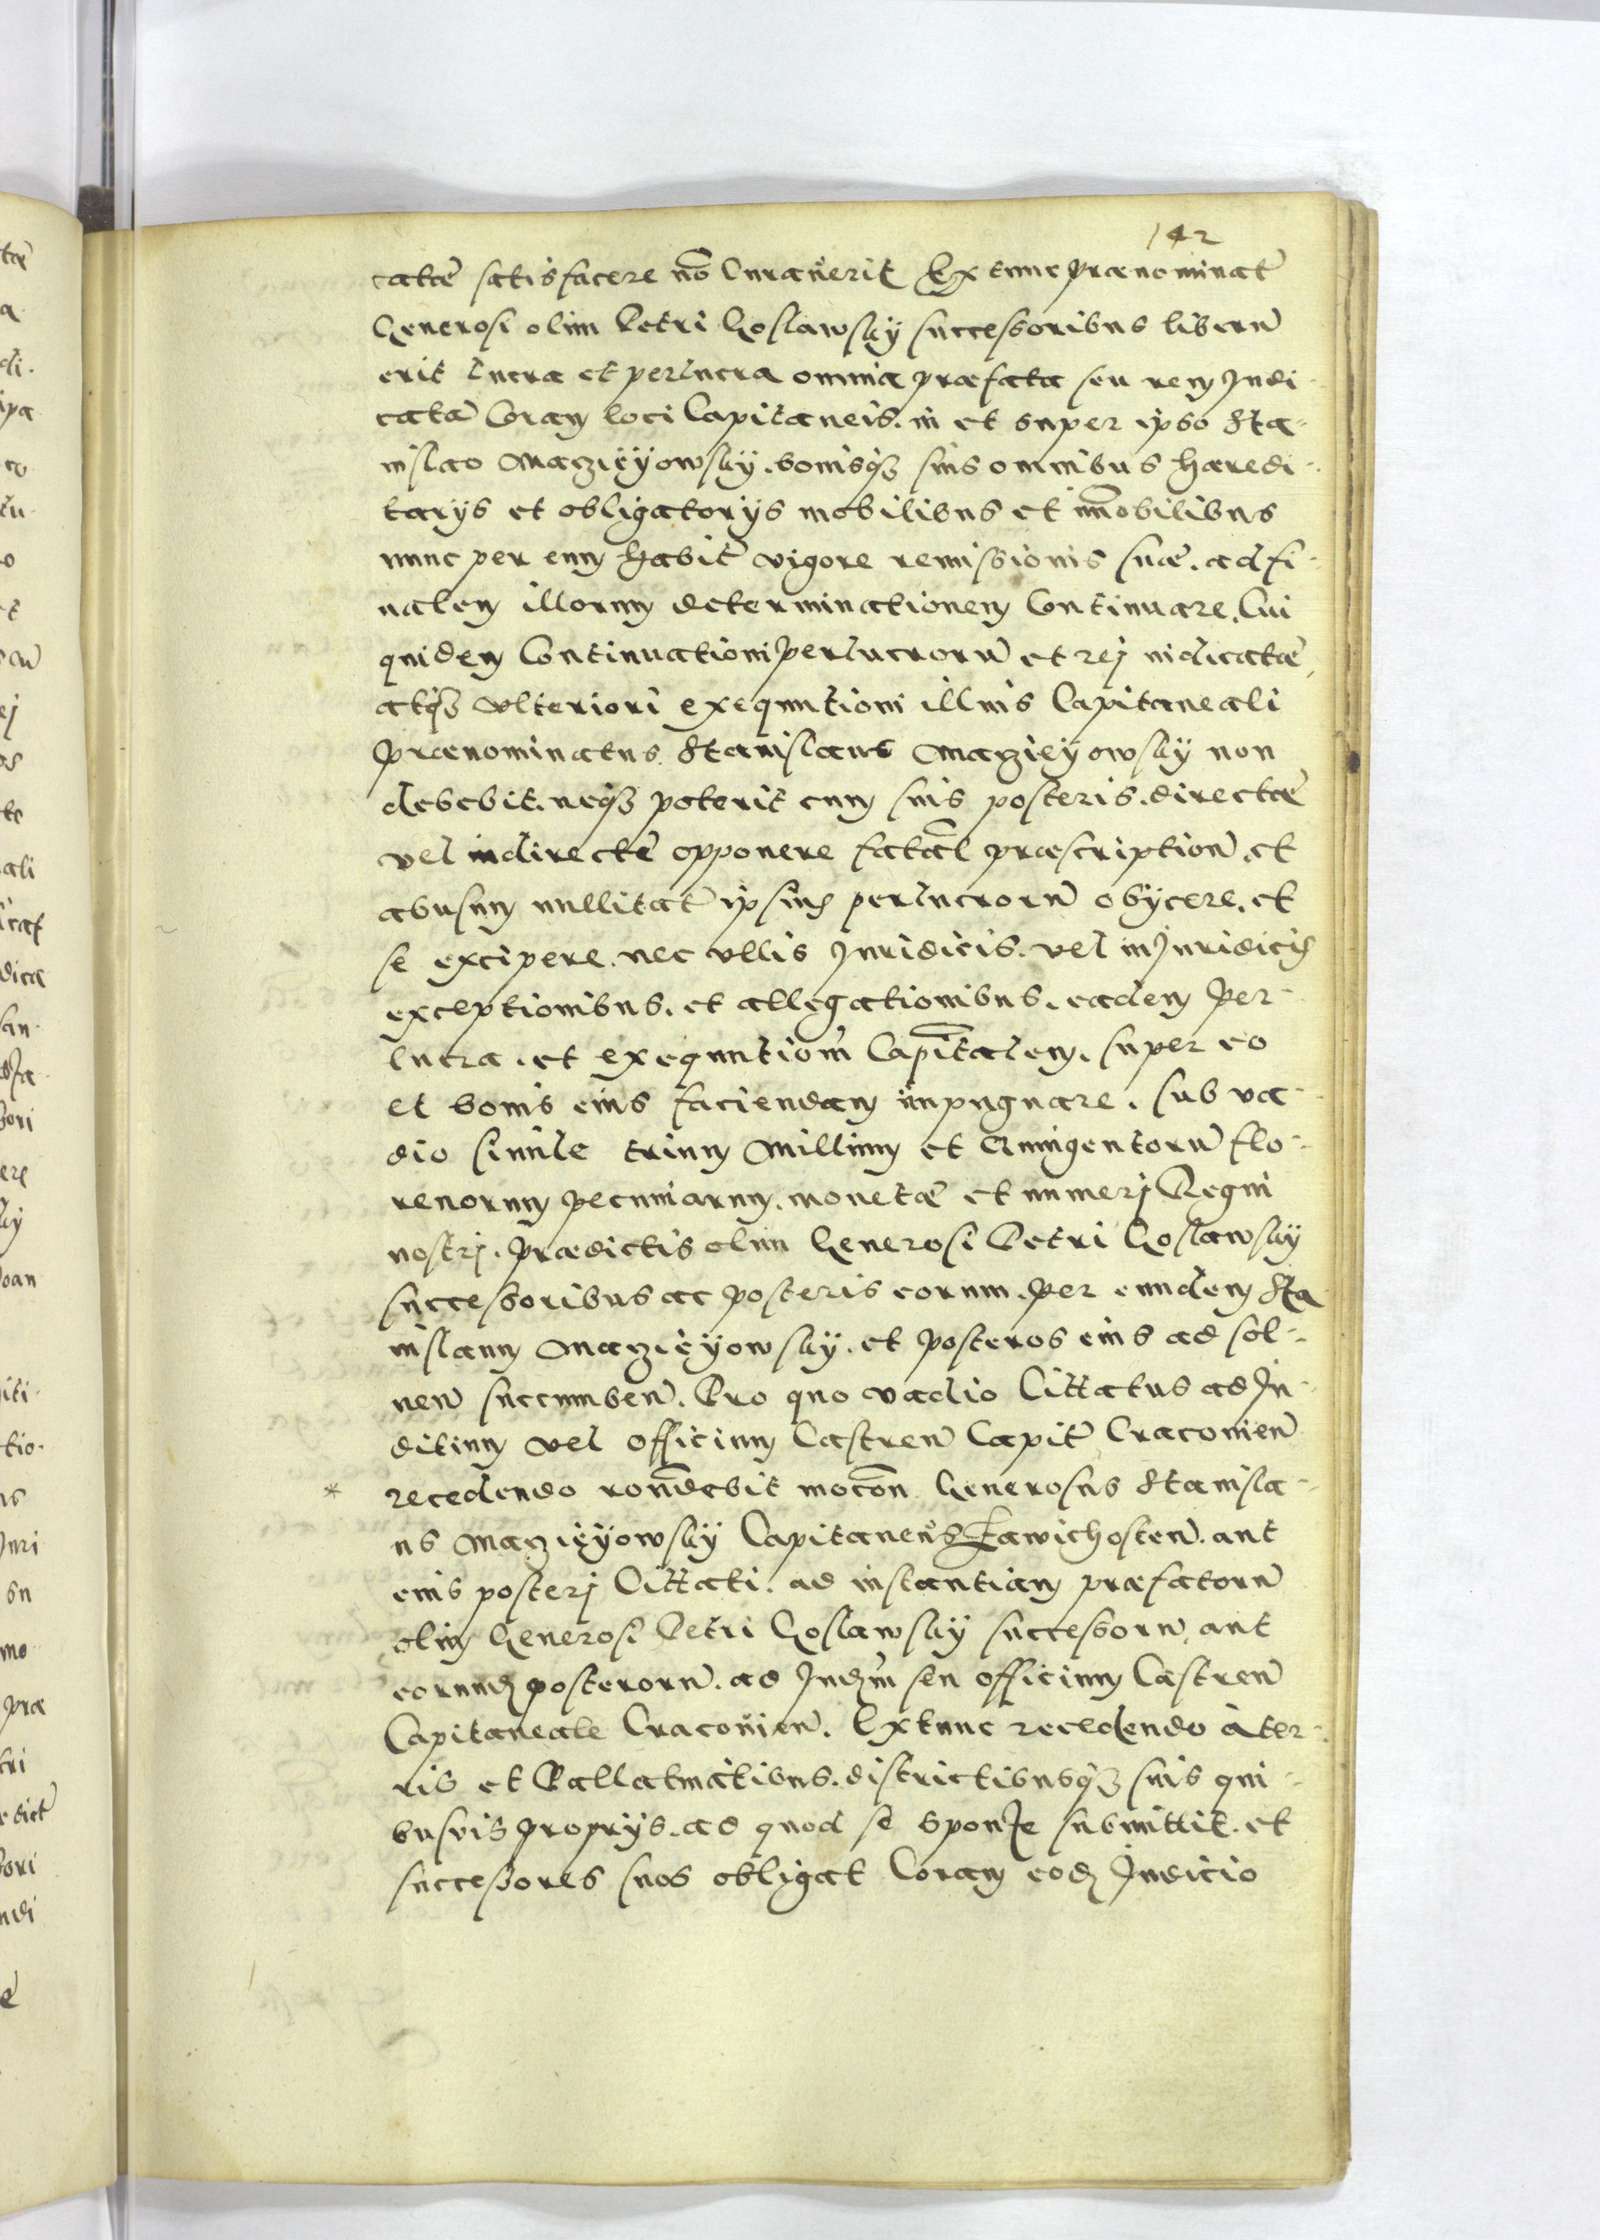 142
catæ satisfacere nõ Curauerit Ex tunc prænominat̃
Generosi olim Petri Goslawsky successoribus liberũ
erit lucra et perlucra omnia præfata seu rem Judi-
catã Coram loci Capitaneis. in et super ipso Sta-
nislao Maczieÿowsky. bonisq3 suis omnibus hæredi-
tarÿs et obligatorÿs mobilibus et im̃obilibus
nunc per eum habit̃ vigore remissionis suæ. ad fi-
nalem illorum determinationem Continuare. Cui
quidem Continuationi perlucrorũ et rej iudicatæ,
atq3 vlteriori exequutioni illius Capitaneali
Prænominatus Stanislaus Maczieÿowsky non
debebit. neq3 poterit cum suis posteris. directæ
vel indirectæ opponere fatal̃ præscription̄, et
abusum nullitat̃ ipsius perlucrorũ obÿcere, et
se excipere. nec vllis Juridicis. vel inJuridicis
exceptionibus. et allegationibus. eadem per-
lucra. et exequutiom̃ Capit̃alem. super eo
et bonis eius faciendam impugnare. sub va-
dio simile trium Millium et Quingentorũ flo-
renorum pecuniarum. monetæ et numerj Regni
nostrj. prædictis olim Generosi Petri Goslawsky
successoribus ac posteris eorum. per eundem Sta
nislaum Maczieÿowsky. et posteros eius ad sol-
uen̄ succumben̄. Pro quo vadio Cittatus ad Ju-
ditium vel officium Castren̄ Capit̃ Cracouien̄
* recedendo ron̄debit mocõn Generosus Stanisla-
us Maczieÿowsky Capitaneus Zawichosten̄. aut
eius posterj Cittati. ad instantiam præfatorũ
olim Generosi Petri Goslawsky successorũ, aut
eorund posterorũ. ad Judm̃ seu officium Castren̄
Capitaneale Cracouien̄. Extunc recedendo à ter-
ris et Pallatinatibus. districtibusq3 suis qui-
busvis proprÿs. ad quod se sponte submittit. et
successores suos obligat Coram eod Judicio